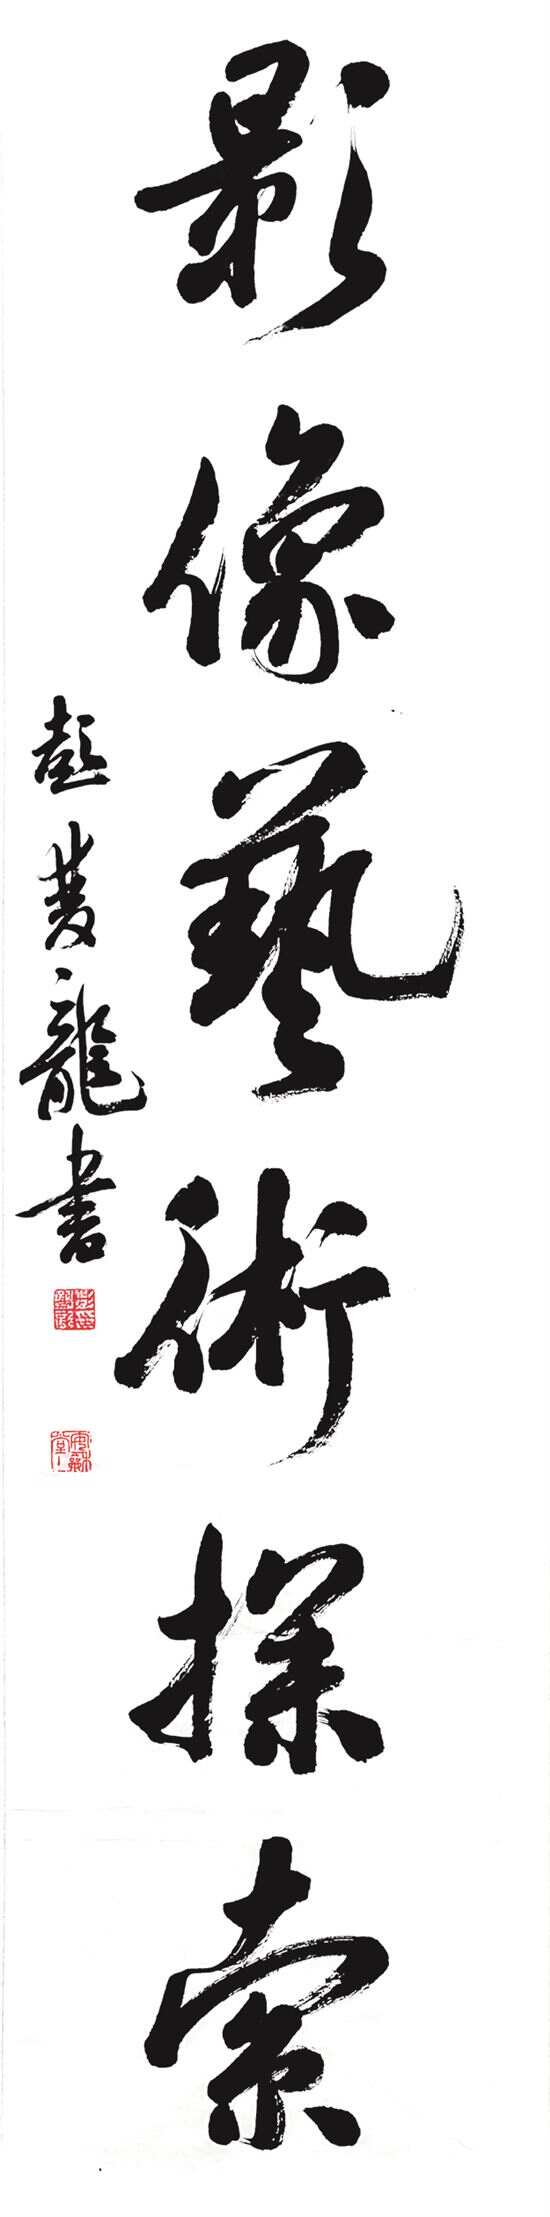 影像藝術探索
彭慶龍書